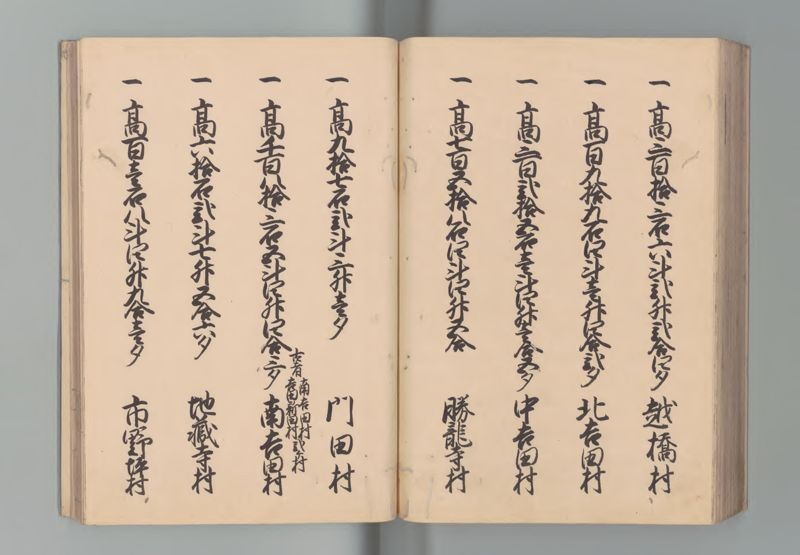 一高三百拾三石六斗弐升弐合四夕 越橋村
一高百九拾九石四斗壱升四合弐夕 北吉田村
一高三百弐拾五石壱斗四升壱合五夕 中吉田村
一高七百五拾八石四斗四升五合 勝龍寺村
一高九拾七石弐斗三升壱夕 門田村
一高千百八拾三石五斗四升四合三夕 南吉田村
古者 南吉田村 吉田新田村 弐ヶ村
一高六拾石弐斗七升五合六夕 地蔵寺村
一高百壱石八斗四升九合壱夕 市野坪村